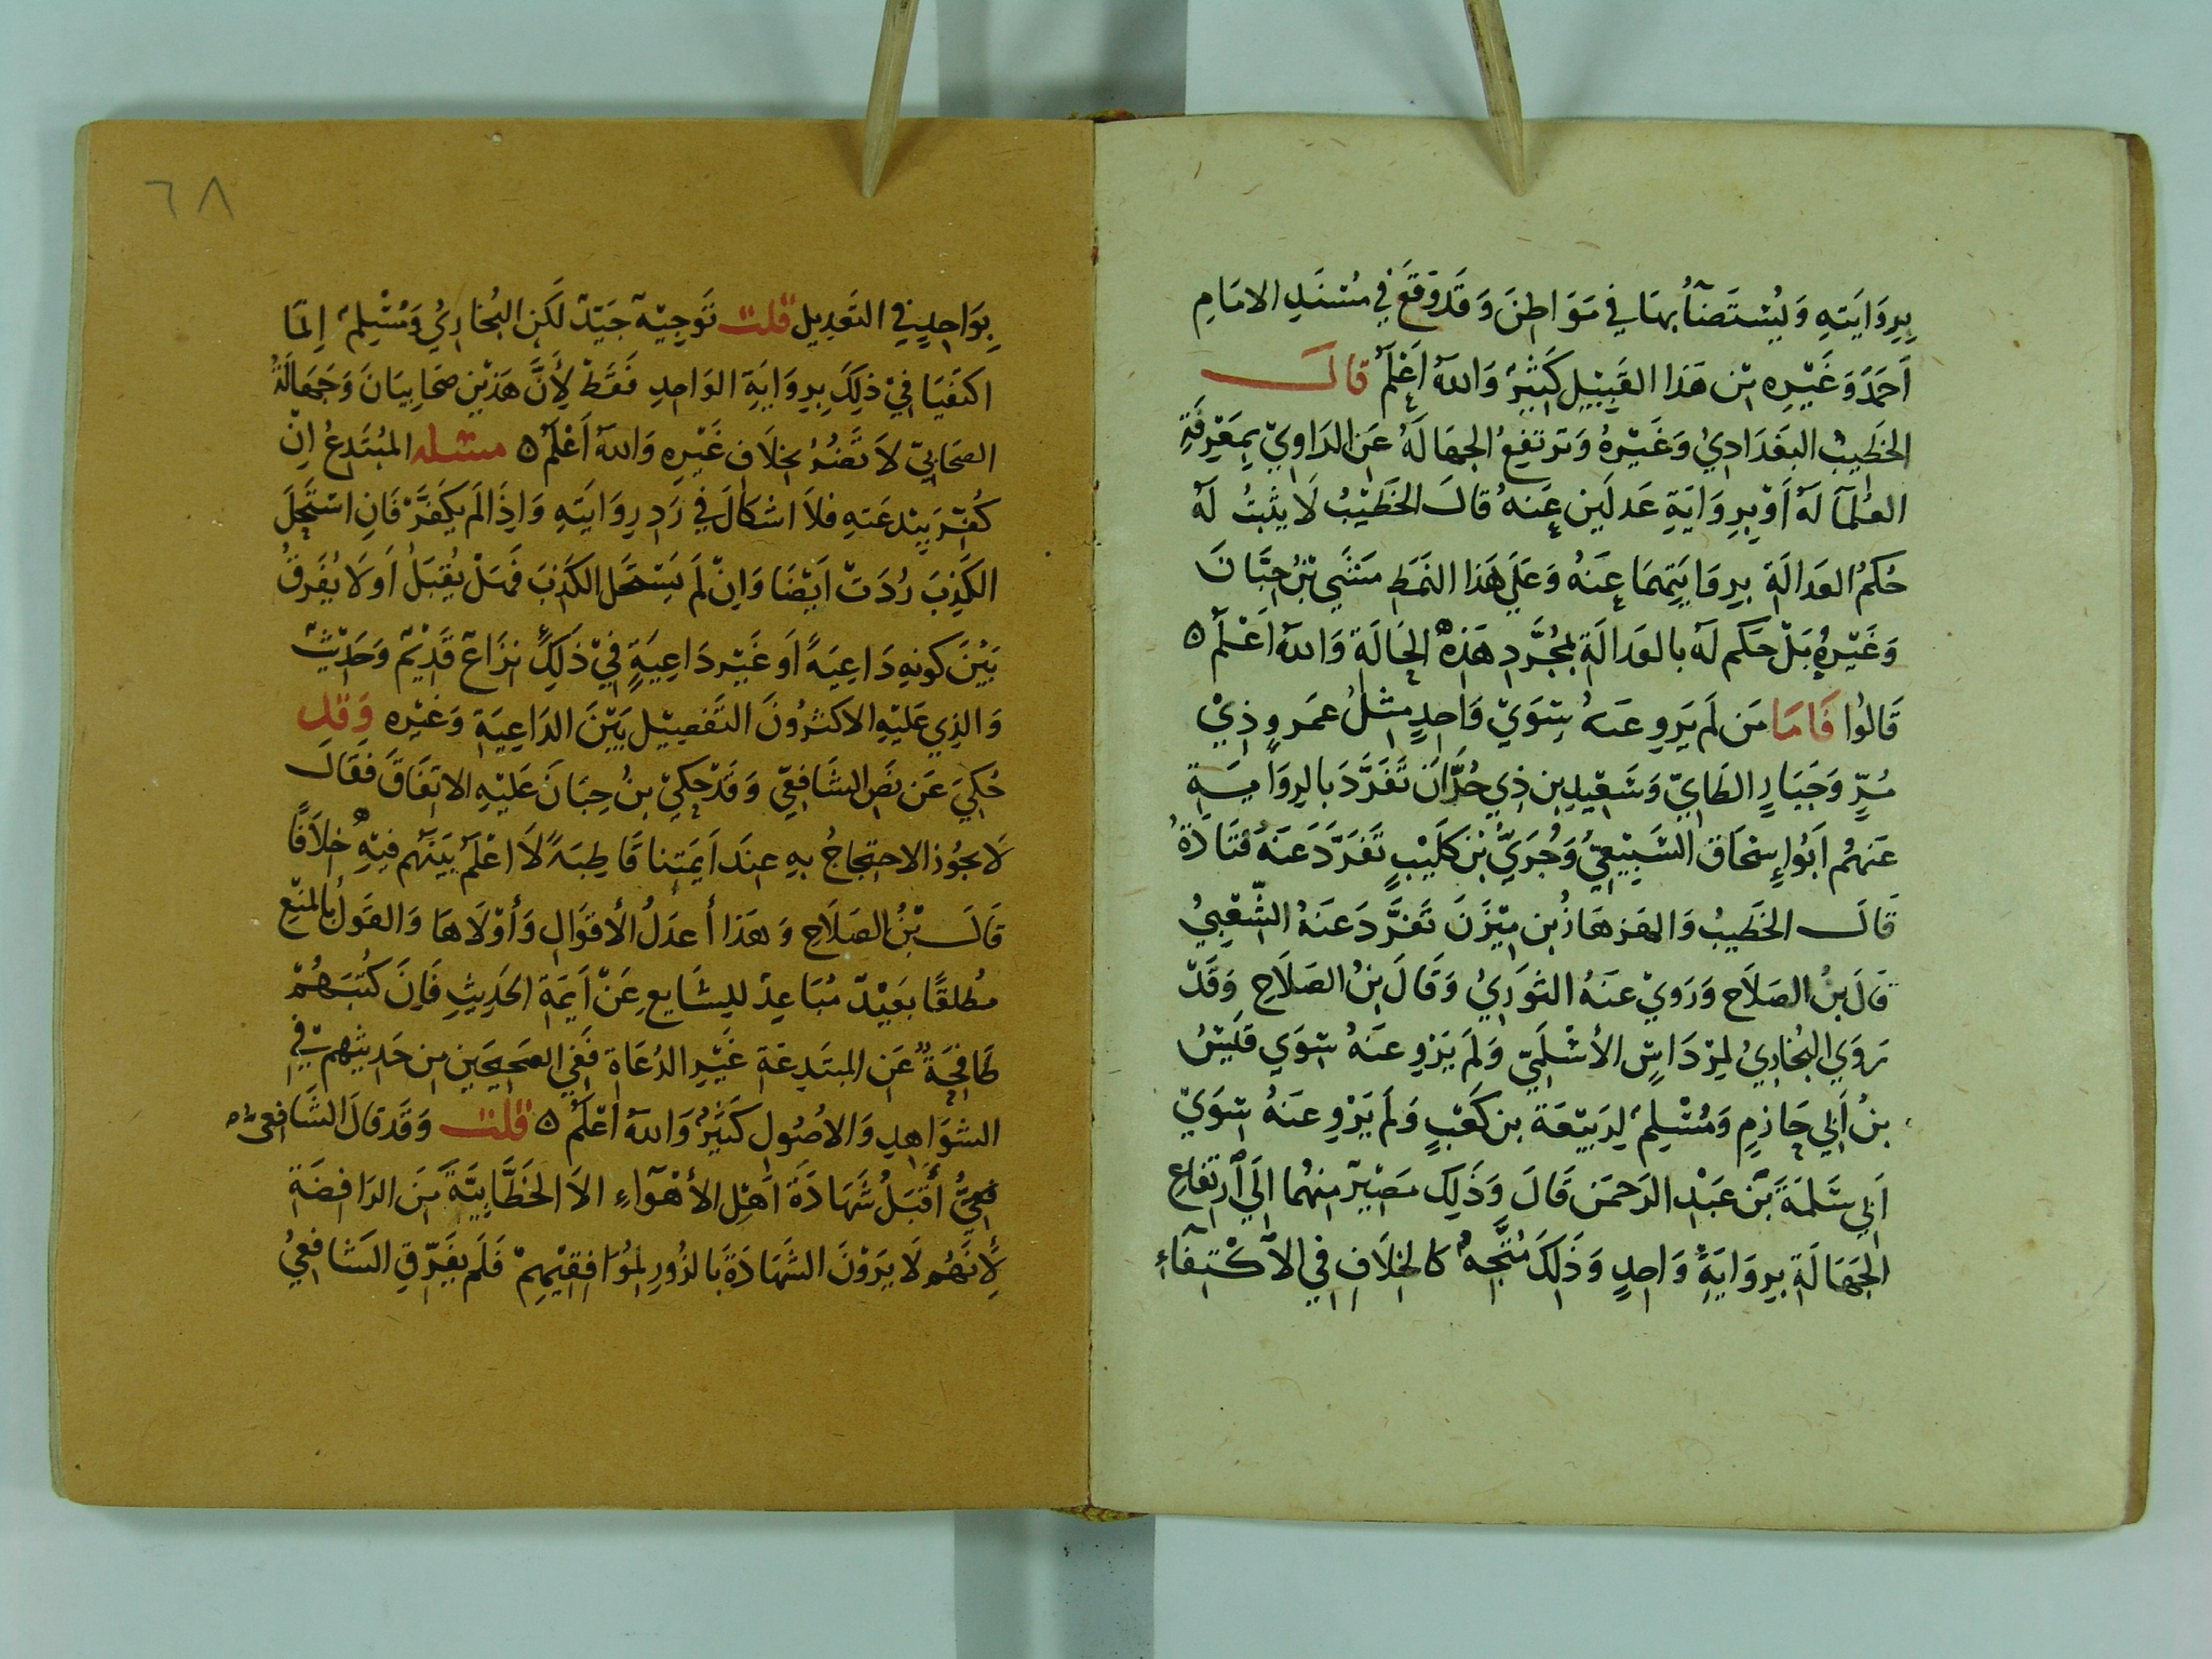 بِرِوَايَتِهِ وَيُسْتَضَآءُ بِهَا فِي مَوَاطِنَ وَقَدْ وَقَعَ فِي مُسْنَدِ الامَامِ
اَحمَدَ وَغَيْرِهِ مِنْ هَذَا القَبِيْلِ كَثِيْرٌ وَاللهُ اَعْلَمُ قالَ
الخَطِيبُ البَغدَادِيُ وَغَيْرُهُ وَتَرتَفِعُ الجهَالَةُ عَنِ الرَاوِيْ بِمَعْرِفَةِ
العُلمآ لَهُ اَوْ بِرِوَايَةِ عَدلَينِ عَنهُ قالَ الخَطَيْبُ لَا يَثْبُتُ لَهُ
حُكمُ العَدالَةِ بِرِوَايَتِهمَا عَنهُ وَعَلَي هَذَا النَمَطِ مَشَي بْنُ حِبَّانَ
وَغَيْرُهُ بَلْ حَكَم لَهُ بالعَدالَةِ بمُجَّرَدِ هَذِهِ الحَالَةِ وَاللهُ اَعْلَمُ ٥
قَالُوا فَامَا مَن لَم يَروِ عَنهُ سِوَيْ وَاحِدٍ مِثلُ عَمرٍو ذِيْ
مُرٍّ وَجَبَارٍ الطَايِيّ وَسَعِيْدِ بنِ ذِي حُدَّانَ تَفَرَّدَ بالرِوَايَةِ
عَنهُم اَبُو إِسْحَاق السَّبِيْعِيُّ وَجُرَيِّ بْن كُلَيْبٍ تَفَرَّدَ عَنهُ قَتَادَةُ
قَالَ الخَطَيبُ وَالهَزهَازُ بن مِيْزَنَ تَفَرَّدَ عَنهُ الشَّعْبِيُ
قَالَ بنُ الصَلَاحِ وَرَويْ عَنهُ الثَوريُ وَقَالَ بنُ الصَلَاحِ وَقَدْ
رَوَي البُخَارِيُ لمِرْدَاسٍ الأسْلَمِيّ وَلَم يَرْوِ عَنهُ سِوَي قَيْسُ
بنُ اَبي حَازمٍ وَمُسْلِمٌ لِرَبيْعَة بن كَعْبٍ وَلَم يَرْوِ عَنهُ سِوَيْ
اَبي سَلمَةَ بْن عَبْد الرَحمَن قَالَ وَذَلِكَ مَصِيْرٌ مِنهُمَا اِلَي ارتِفَاعِ
الجَهَالَةِ بِروَايَةِ وَاحدٍ وَذَلِكَ مُتَّجِهٌ كالخِلَافِ فِي الاكْتِفَآءِ
٦٨
بِوَاحِدٍ فِي التَعدِيلِ قلت تَوجِيْهٌ جَيِّدٌ لَكِنِ البُخارِيُ وَمُسْلِمٌ اِنّمَا
اكتَفَيَا فِيْ ذلِكَ بِرِوَايَةِ الوَاحِدِ فَقَطْ لِأَنَّ هَذَيْنِ صَحَابِيَانَ وَجَهَالَةُ
الصَحَابيّ لَا تَضُرُ بخِلَافِ غَيْرِهِ وَاللهُ اَعْلَمُ ٥ مسئله المُبتَدِعُ اِنْ
كُفِّرَ بِبِدعَتِهِ فلَا اشكَالَ فِي رَدِ رِوَايَتِهِ وَاِذَا لَم يُكَفَّرْ فَانِ اسْتَحَلَ
الكَذِبَ رُدَتْ اَيْضًا وَاِنْ لَم يَسْتَحِل الكَذِبَ فَهَلْ يُقْبَلُ اَو لَا يُفَرقُ
بَيْنَ كونهِ دَاعِيَةً اَو غَيْر دَاعِيَةٍ فِيْ ذَلِكَ نِزَاعٌ قَدِيْمٌ وَحَدِيْثٌ
وَالذِي عَليْهِ الاكثَرُونَ التَفصِيْل بَيْنَ الدَاعِيَةِ وَغَيْرِه وَقد
حُكِيَ عَن نَصِ الشَافِعِيّ وَقَدْ حَكيْ بنُ حِبَانَ عَلَيْهِ الاتفَاقَ فَقَالَ
لَا يجُوز الاحتِجاجُ بهِ عِندَ اَيمَتِنا قَاطِبَةً لَا اعْلَمُ بَينَهُم فيْهِ خِلَافًا
قَالَ بْنُ الصَلَاحِ وَهَذا أعدَلُ الأقوَالِ وَأوْلَاهَا وَالقَولُ بالمَنْعِ
مطُلقًا بَعِيْدٌ مُبَاعِدٌ للِشَايعِ عَنْ اَيمَةِ الحَدِيثِ فَاِنَ كُتُبَهُمْ
طَافِحَةٌ عَن المبتَدِعَةِ غَيْرِ الدُعَاةِ فَفِي الصَحِيحَينِ مِن حَدِيثِهم فِي
الشوَاهِدِ وَالاصُولِ كَثِيْرٌ وَاللهُ اعْلَمُ ٥ قلت وَقَد قالَ الشَافعي
أقْبَلُ شَهَادَةَ اَهْلِ الأهْوَاءِ الاَ الخَطَّابِيَّةَ مِنَ الرَافِضَةِ
لِأنَهُم لَا يَرَوْنَ الشَهَادَةَ بَالزُورِ لمُوَافِقيْهِمْ فَلَم يُفَرّقِ الشَافِعِيُ